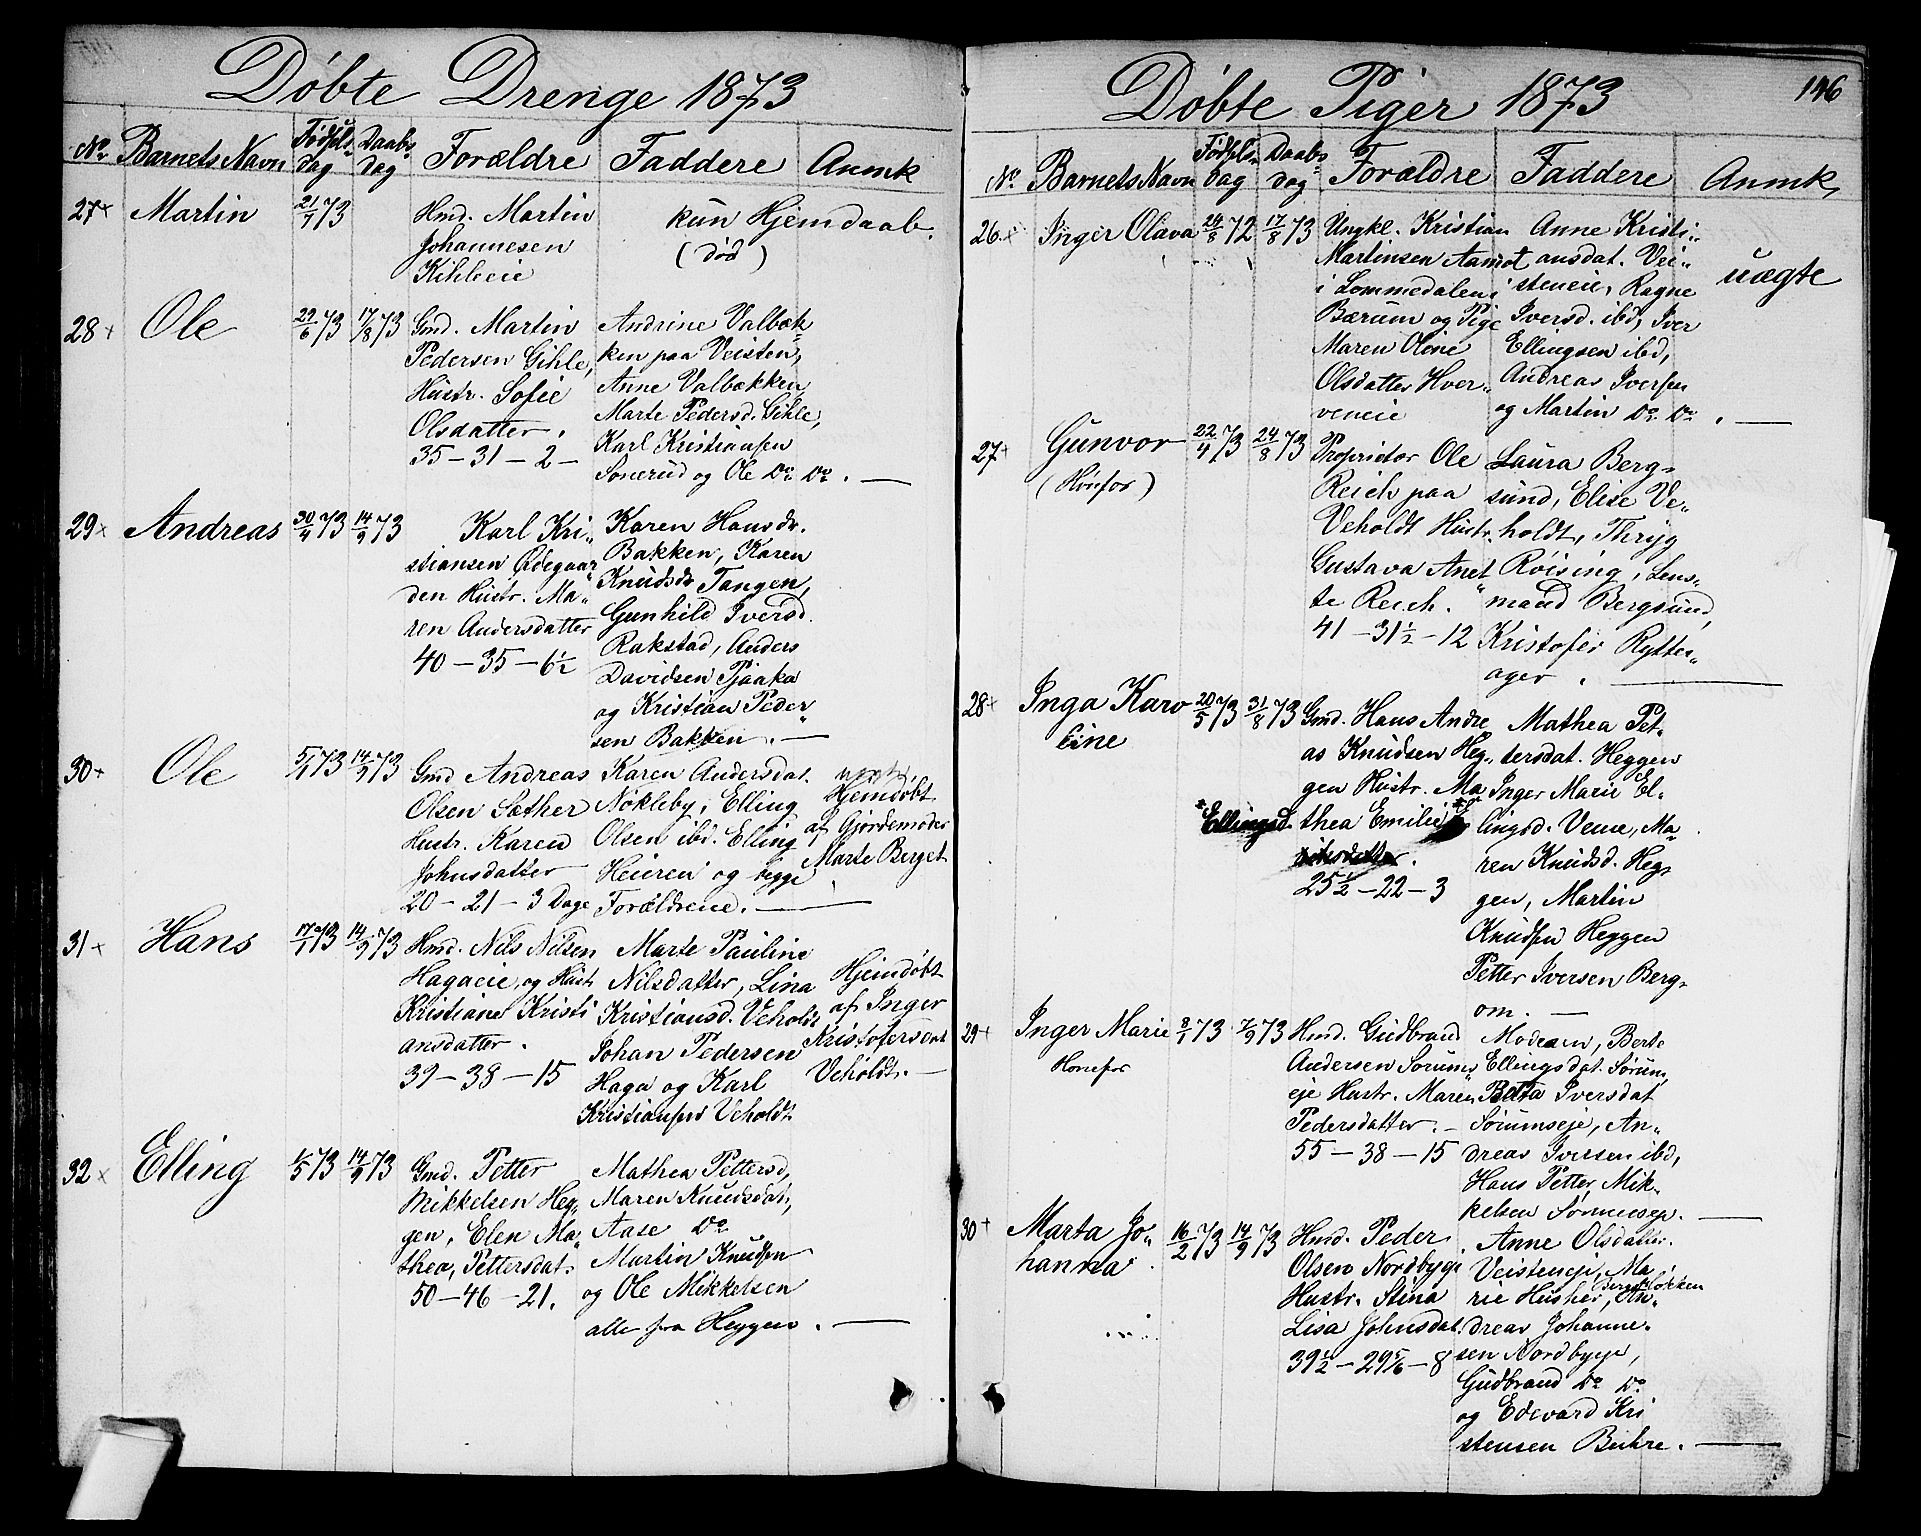 Døbte Drenge 1873
No. Barnets Navn Fødsels- dag Daabs- dag Forældre Faddere Anmk
27 Martin 21/7 73 Hmd. Martin
Johannesen
Kihleeie
kun Hjemdaab.
(død)
28 Ole 29/6 73 17/8 73
Gmd. Martin
Pedersen Gihle,
Hustr. Sofie
Olsdatter.
35 – 31 – 2 –
Andrine Valbæk
ken paa Veisten,
Anne Valbækken
Marte Pedersd. Gihle,
Karl Kristiansen
Sonerud og Ole Do. Do. . —
29 Andreas 30/4 73 14/9 73
Karl Kri-
stiansen Ødegaar
den Hustr. Ma-
ren Andersdatter
40 – 35 – 6½
Karen Hansdr.
Bakken, Karen
Knudsdr Tangen,
Gunhild Iversd.
Rakstad, Anders
Davidsen Pjaaka
og Kristian Peder
sen Bakken. —
30 Ole 5/4 73 14/9 73
Gmd Andreas
Olsen Sæther
Hustr. Karen
Johnsdatter
20 – 21 – 3 Dage
Karen Andersdat.
Nøkleby, Elling
Olsen ibd. Elling
Heieren og begge
Forældrene. —
Hjemdøbt
af Gjordemoder
Marte Berget
31 Hans 17/1 73 14/9 73
Hmd. Nils Nilsen
Hagaeie, og Hust
Kristiane Kristi
ansdatter.
39 – 38 – 15
Marte Pauline
Nilsdatter, Lina
Kristiansd. Veholdt
Johan Pedersen
Haga og Karl
Kristiansen Veholdt
Hjemdøbt
af Inger
Kristofersdat
Veholdt. —
32 Elling 1/5 73 14/9 73
Gmd. Petter
Mikkelsen Heg-
gen, Elen Ma-
thea, Pettersdat.
50 – 46 – 21.
Mathea Pettersd,
Maren Knudsdat,
Aase Do.
Martin Knudsen
og Ole Mikkelsen
alle fra Heggen. —
Døbte Piger 1873 146
No. Barnets Navn Fødsels- dag Daabs- dag Forældre Faddere Anmk.
26 Inger Olava 24/8 72 17/8 73
Ungkl. Kristian
Martinsen Aamot
i Lommedalen i
Bærum og Pige
Maren Oline
Olsdatter Hver-
veneie
Anne Kristi-
ansdat. Vei-
steneie, Ragne
Iversd. ibd, Iver
Ellingsen ibd,
Andreas Iversen
og Martin Do. Do. . —
uægte
27 Gunvor 22/4 73 24/8 73
(Hønfos)
Proprietær Ole
Reich paa
Veholdt Hustr.
Gustava Anet
te Reich.
41 – 31½ – 12
Laura Berg-
sund, Elise Ve-
holdt, Thryg
Røising, Lens-
mand Bergsund,
Kristofer Rytter-
ager . —
28 Inga Karo 20/5 73 31/8 73
line
Gmd. Hans Andre
as Knudsen Heg-
gen Hustr. Ma
* Ellingsd. thea Emilie *
25½ – 22 – 3
Mathea Pet-
tersdat. Heggen
Inger Marie El-
lingsd. Veme, Ma-
ren Knudsd. Heg-
gen, Martin
Knudsen Heggen
Petter Iversen Berg-
om. —
29 Inger Marie 8/1 73 7/9 73
Hønefos
Hmd. Gudbrand
Andersen Sørums
eje Hustr. Maren
Pedersdatter. –
55 – 38 – 15
Moderen, Berte
Ellingsdat. Sørum,
Iversdat
Sørumseje, An-
dreas Iversen ibd,
Hans Petter Mik-
kelsen Sørumseje. —
30 Marta Jo- 16/2 73 14/9 73
hanna
Hmd. Peder
Olsen Nordbyeje
Hustr. Stina
Lisa Johnsdat.
39½ – 29 5/6 – 8
Anne Olsdatter.
Veisteneje, Ma
rie Husher, An-
dreas Johanne-
sen Nordbyeje,
Gudbrand Do. Do.
og Edevard Kri
stensen Buhre. —